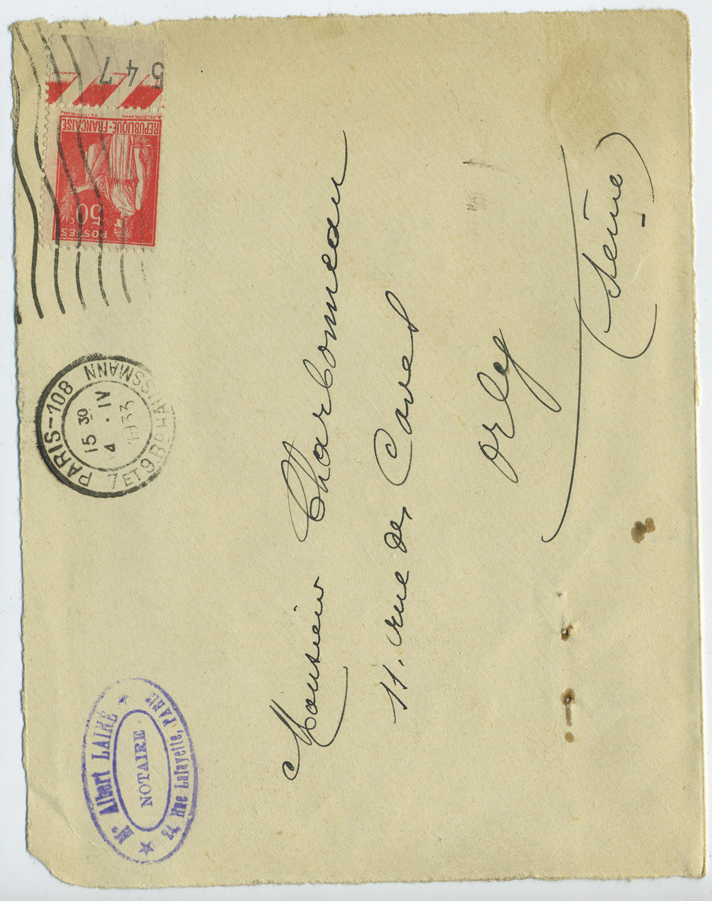 Me Albert LAIRE
NOTAIRE
24, Rue Lafayette, PARIS
PARIS-108
15 30
4 . IV
1933
7 ET 9 Bd HAUSSMANN
547
REPUBLIQUE-FRANÇAISE
50c
POSTES
Monsieur Charbonneau
11. rue des Caves
Orly
(Seine)